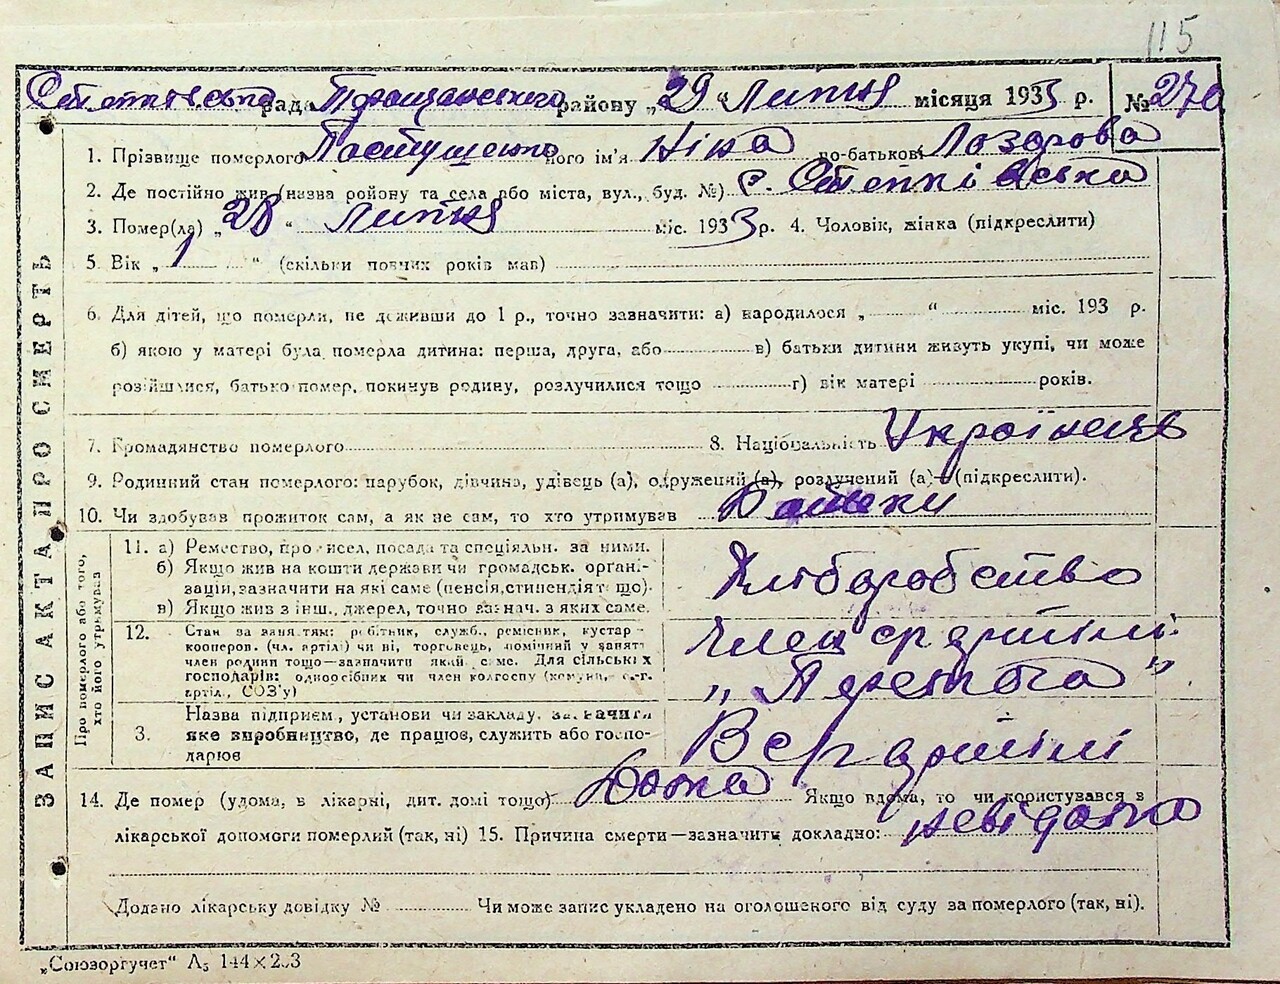 115
Степківська рада Первомайського району „29“ Липня місяця 1933 р. № 270
1. Прізвище померлого Пастушенко його ім'я Ніна по-батькові Лазарова
2. Де постійно жив (назва району та села або міста, вул., буд. №) с. Степківська
3. Помер(ла) „28“ липня міс. 1933 р. 4. Чоловік, жінка (підкреслити)
5. Вік „1“ (скільки повних років мав)
6. Для дітей, що померли, не доживши до 1 р., точно зазначити: а) народилося „ “ міс. 193 р.
б) якою у матері була померла дитина: перша, друга, або в) батьки дитини живуть укупі, чи може
розійшлися, батько помер, покинув родину, розлучилися тощо г) вік матері років.
7. Громадянство померлого 8. Національність Українець
9. Родинний стан померлого: парубок, дівчина, удівець (а), одружений (а), розлучений (а) — (підкреслити).
10. Чи здобував прожиток сам, а як не сам, то хто утримував Батьки
ЗАПИС АКТА ПРО СМЕРТЬ
Про померлого або того, хто його утримував
11. а) Ремество, промисел, посада та спеціяльн. за ними.
б) Якщо жив на кошти держави чи громадськ. органі-
зацій, зазначити на які саме (пенсія, стипендія тощо).
в) Якщо жив з інш. джерел, точно зазнач. з яких саме.
Хліборобство
12. Стан за заняттям: робітник, служб., ремісник, кустар-
кооперов. (чл. артілі) чи ні, торговець, помічний у занятт
член родини тощо—зазначити який саме. Для сільських
господарів: одноосібник чи член колгоспу (комуни, с.-г.
артіл., СОЗ'у)
Член ср артілі
„Перемога“
3. Назва підприєм., установи чи закладу, зазначити
яке виробництво, де працює, служить або госпо-
дарює
В ср артілі
14. Де помер (удома, в лікарні, дит. домі тощо) Дома Якщо вдома, то чи користувався з
лікарської допомоги померлий (так, ні) 15. Причина смерти—зазначить докладно: невідома
Додано лікарську довідку № Чи може запис укладено на оголошеного від суду за померлого (так, ні).
„Союзоргучет“ А₅ 144×203